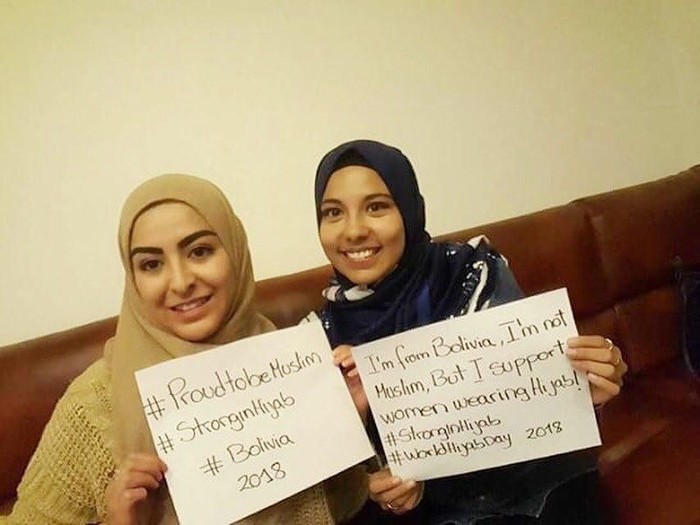 #ProudtobeMuslim
#StronginHijab
#Bolivia
2018
I'm from Bolivia, I'm not
Muslim, But I support
women wearing Hijab!
#StronginHijab
#WorldHijabDay 2018